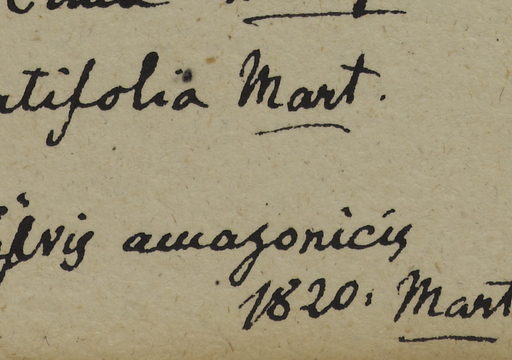 atifolia Mart.
Sylvis amazonicis
1820. Mart